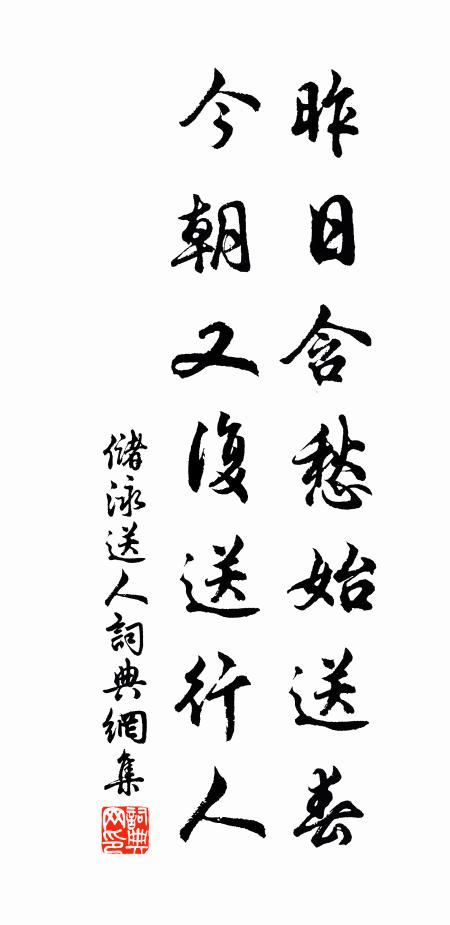 昨日含愁始送春
今朝又復送行人
儲泳送人詞典網集
詞典网印